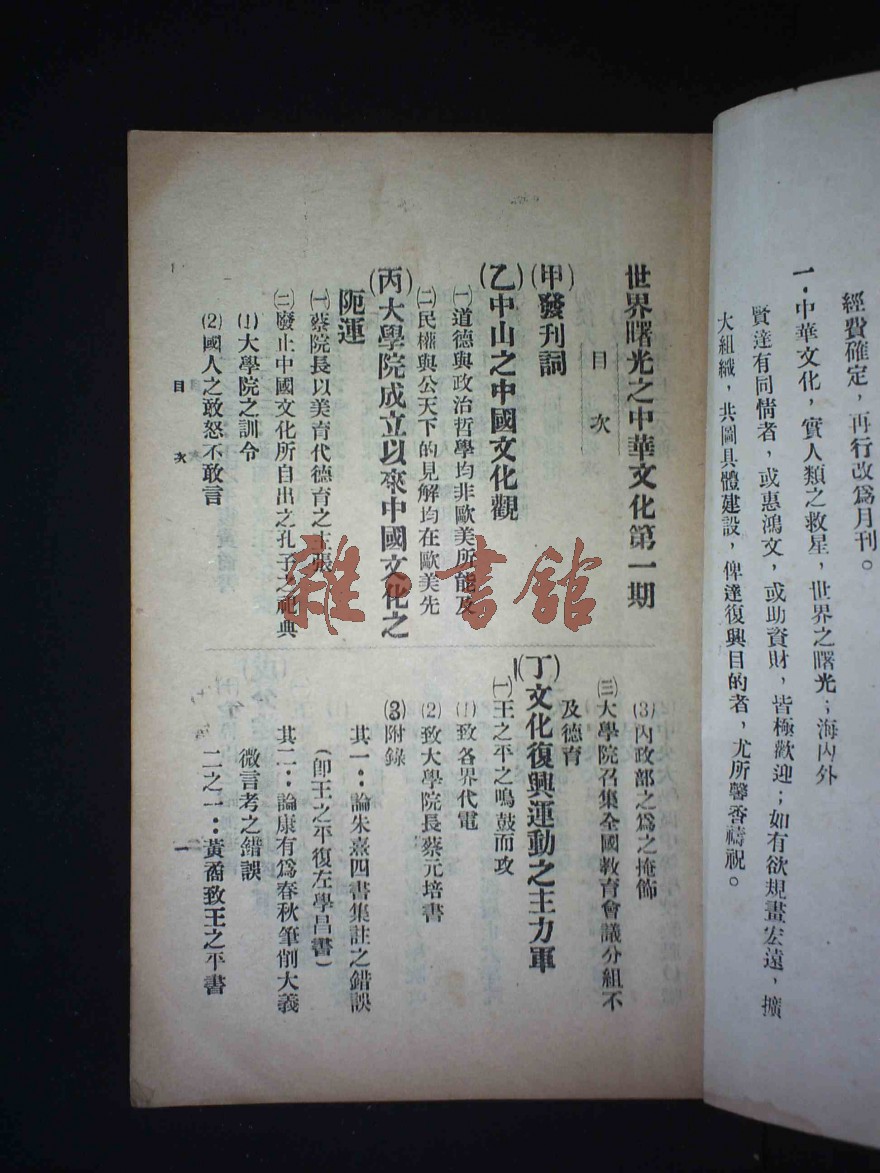 經費確定，再行改爲月刊。
一．中華文化，實人類之救星，世界之曙光；海內外
賢達有同情者，或惠鴻文，或助資財，皆極歡迎；如有欲規畫宏遠，擴
大組織，共圖具體建設，俾達復興目的者，尤所馨香禱祝。
世界曙光之中華文化第一期
目　次
(甲)發刊詞
(乙)中山之中國文化觀
㈠道德與政治哲學均非歐美所能及
㈡民權與公天下的見解均在歐美先
(丙)大學院成立以來中國文化之
阨運
㈠蔡院長以美育代德育之主張
㈡廢止中國文化所自出之孔子之祀典
⑴大學院之訓令
⑵國人之敢怒不敢言
⑶內政部之爲之掩飾
㈢大學院召集全國教育會議分組不
及德育
(丁)文化復興運動之主力軍
㈠王之平之鳴鼓而攻
⑴致各界代電
⑵致大學院長蔡元培書
⑶附錄
其一：論朱熹四書集註之錯誤
（卽王之平復左學昌書）
其二：論康有爲春秋筆削大義
微言考之錯誤
二之一：黃喬致王之平書
目　次
一
雜·書館